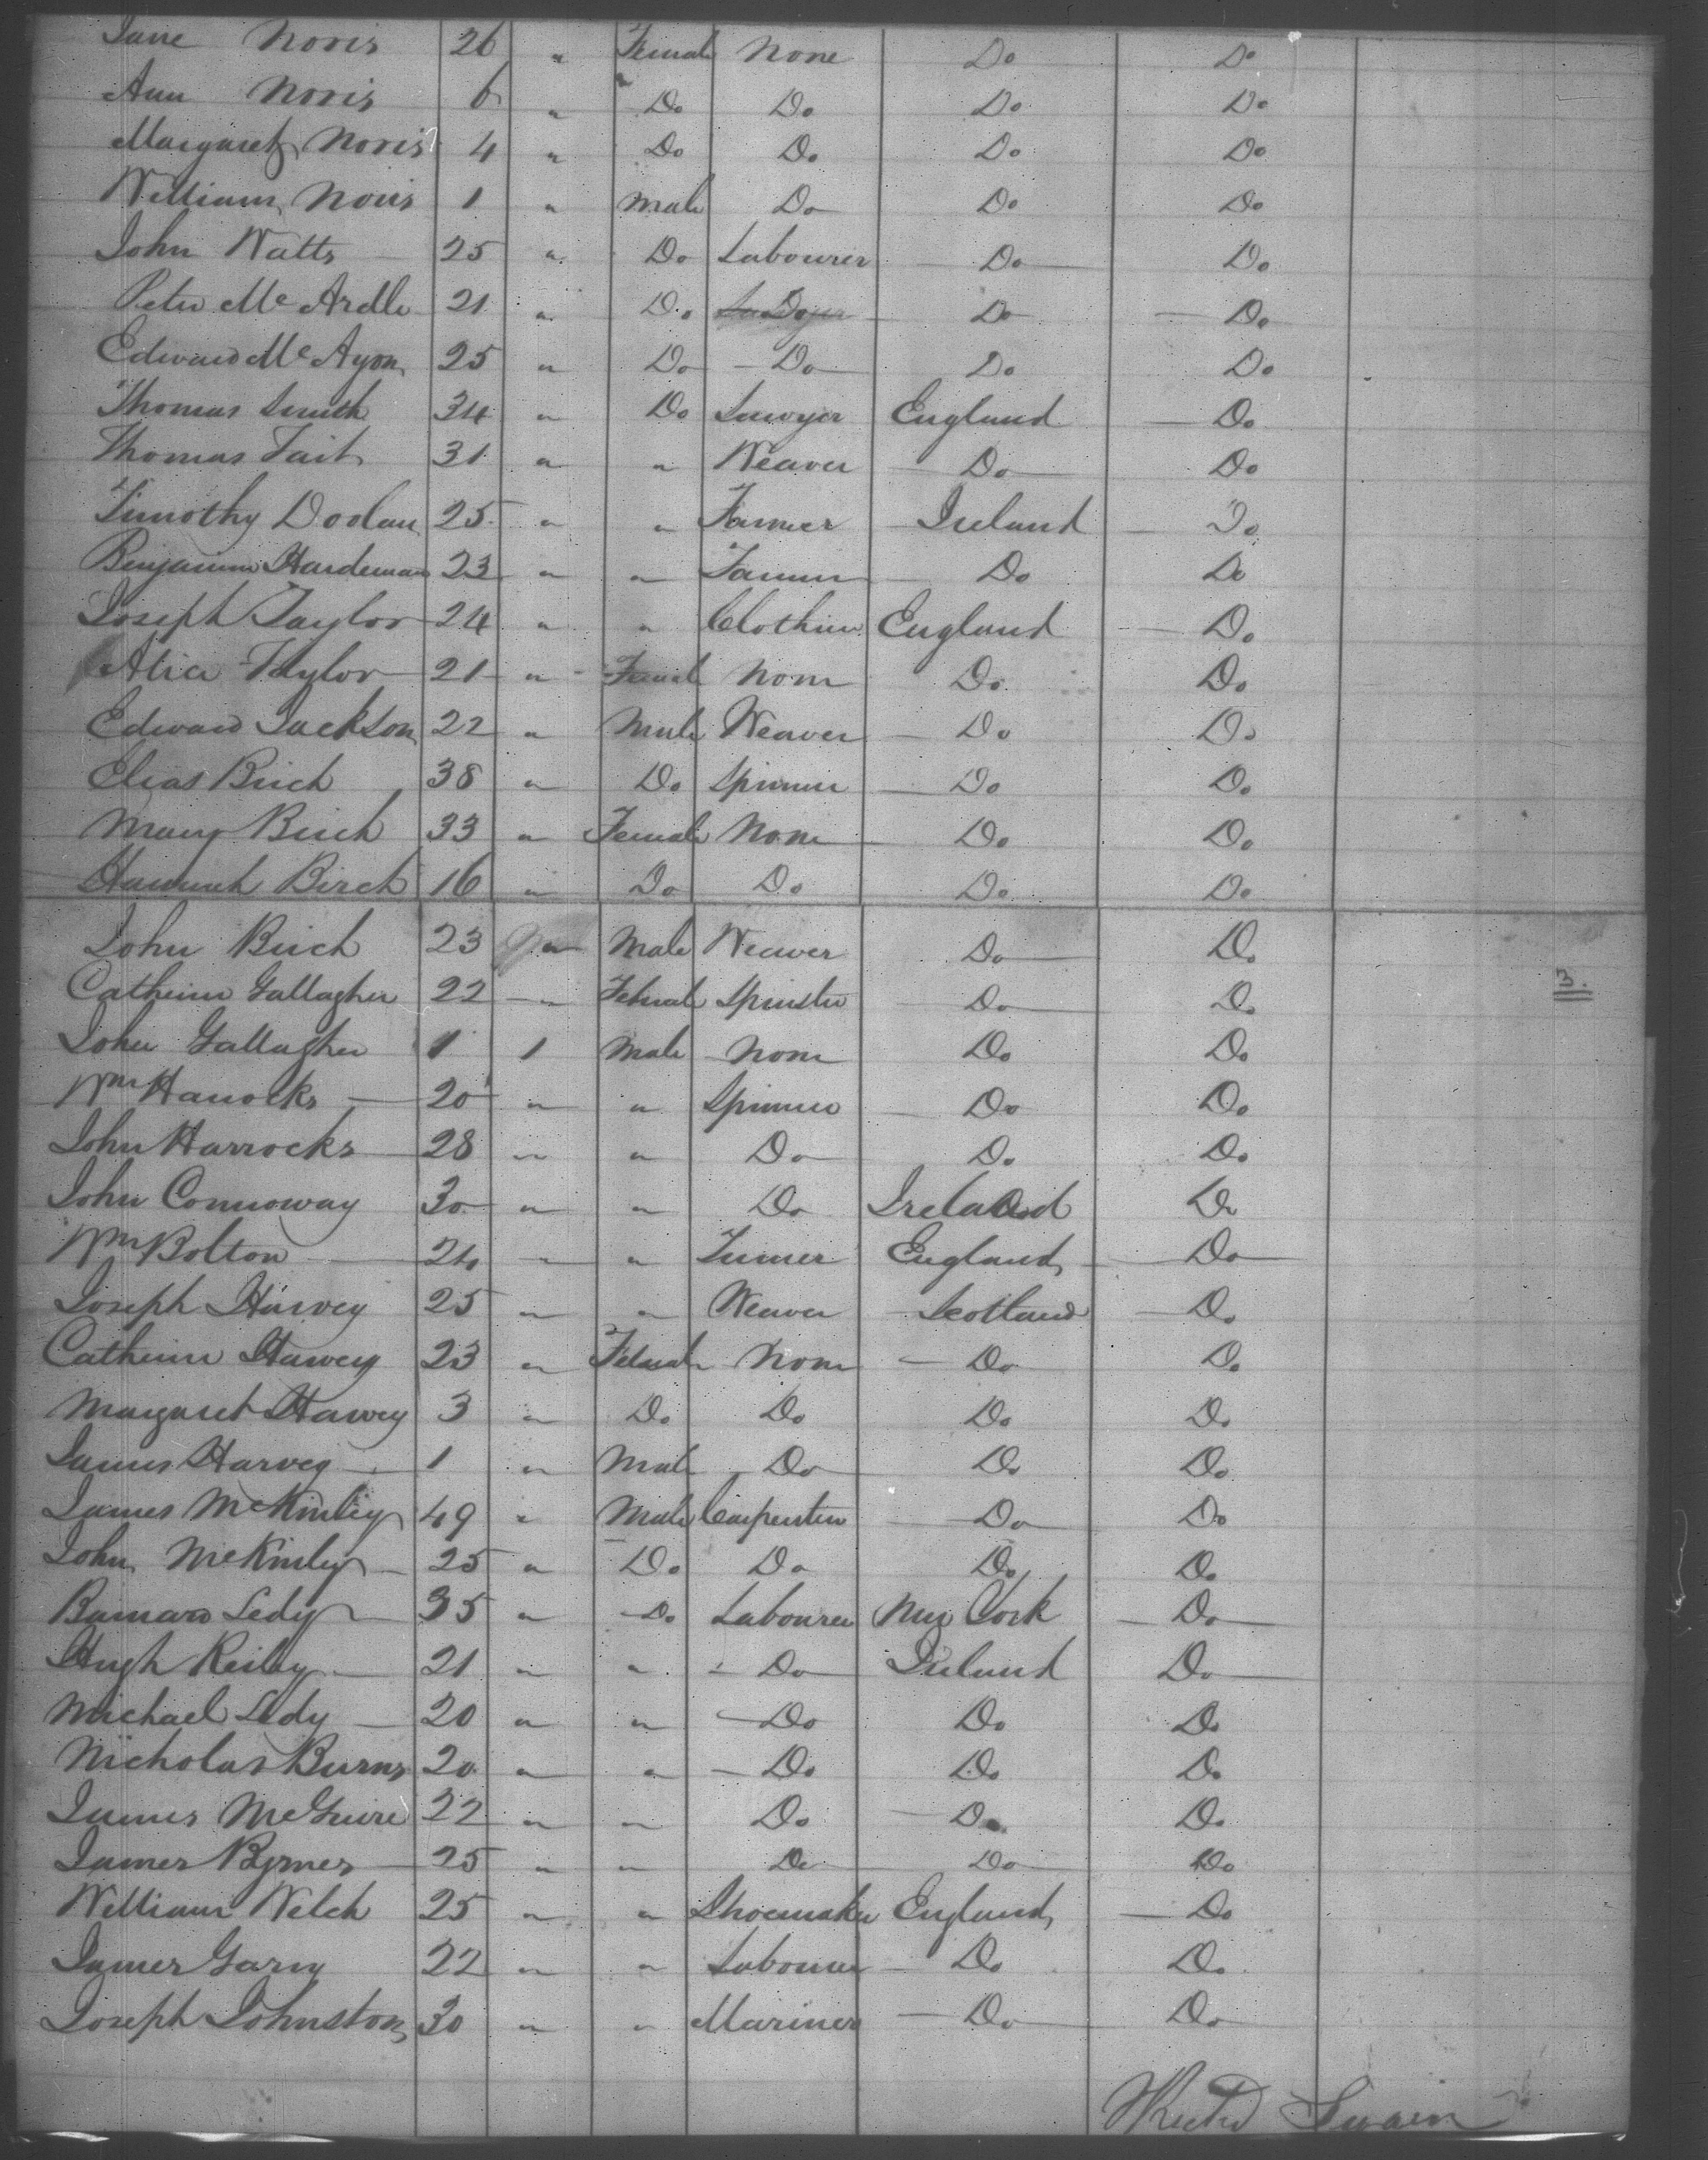 Jane Noris 26 " Female None Do Do
Ann Noris 6 " Do Do Do Do
Margaret Noris 4 " Do Do Do Do
William Noris 1 " Male Do Do Do
John Watts 25 " Do Labourer Do Do
Peter McArdle 21 " Do Do Do
Edward McAyon 25 " Do Do Do Do
Thomas Smith 34 " Do Sawyer England Do
Thomas Tait 31 " " Weaver Do Do
Timothy Doolan 25 " " Farmer Ireland Do
Benjamin Hardeman 23 " " Farmer Do Do
Joseph Taylor 24 " " Clothier England Do
Alice Taylor 21 " Female None Do Do
Edward Jackson 22 " Male Weaver Do Do
Elias Birch 38 " Do Spinner Do Do
Mary Birch 33 " Female None Do Do
Hannah Birch 16 " Do Do Do Do
John Birch 23 " Male Weaver Do Do
Catherine Gallagher 22 " Female Spinster Do Do
3.
John Gallagher 1 1 Male None Do Do
Wm Harrocks 20 " " Spinner Do Do
John Harrocks 28 " " Do Do Do
John Connoway 30 " " Do Ireland Do
Wm Bolton 24 " " Turner England Do
Joseph Harvey 25 " " Weaver Scotland Do
Catherine Harvey 23 " Female None Do Do
Margaret Harvey 3 " Do Do Do Do
James Harvey 1 " Male Do Do Do
James McKinley 49 " Male Carpenter Do Do
John McKinley 25 " Do Do Do Do
Barnard Ledy 35 " Do Labourer New York Do
Hugh Reiley 21 " " Do Ireland Do
Michael Ledy 20 " " Do Do Do
Nicholas Burns 20 " " Do Do Do
James McGuire 22 " " Do Do Do
James Byrnes 25 " " Do Do Do
William Welch 25 " " Shoemaker England Do
James Garry 22 " " Labourer Do Do
Joseph Johnston 30 " " Mariner Do Do
Swain